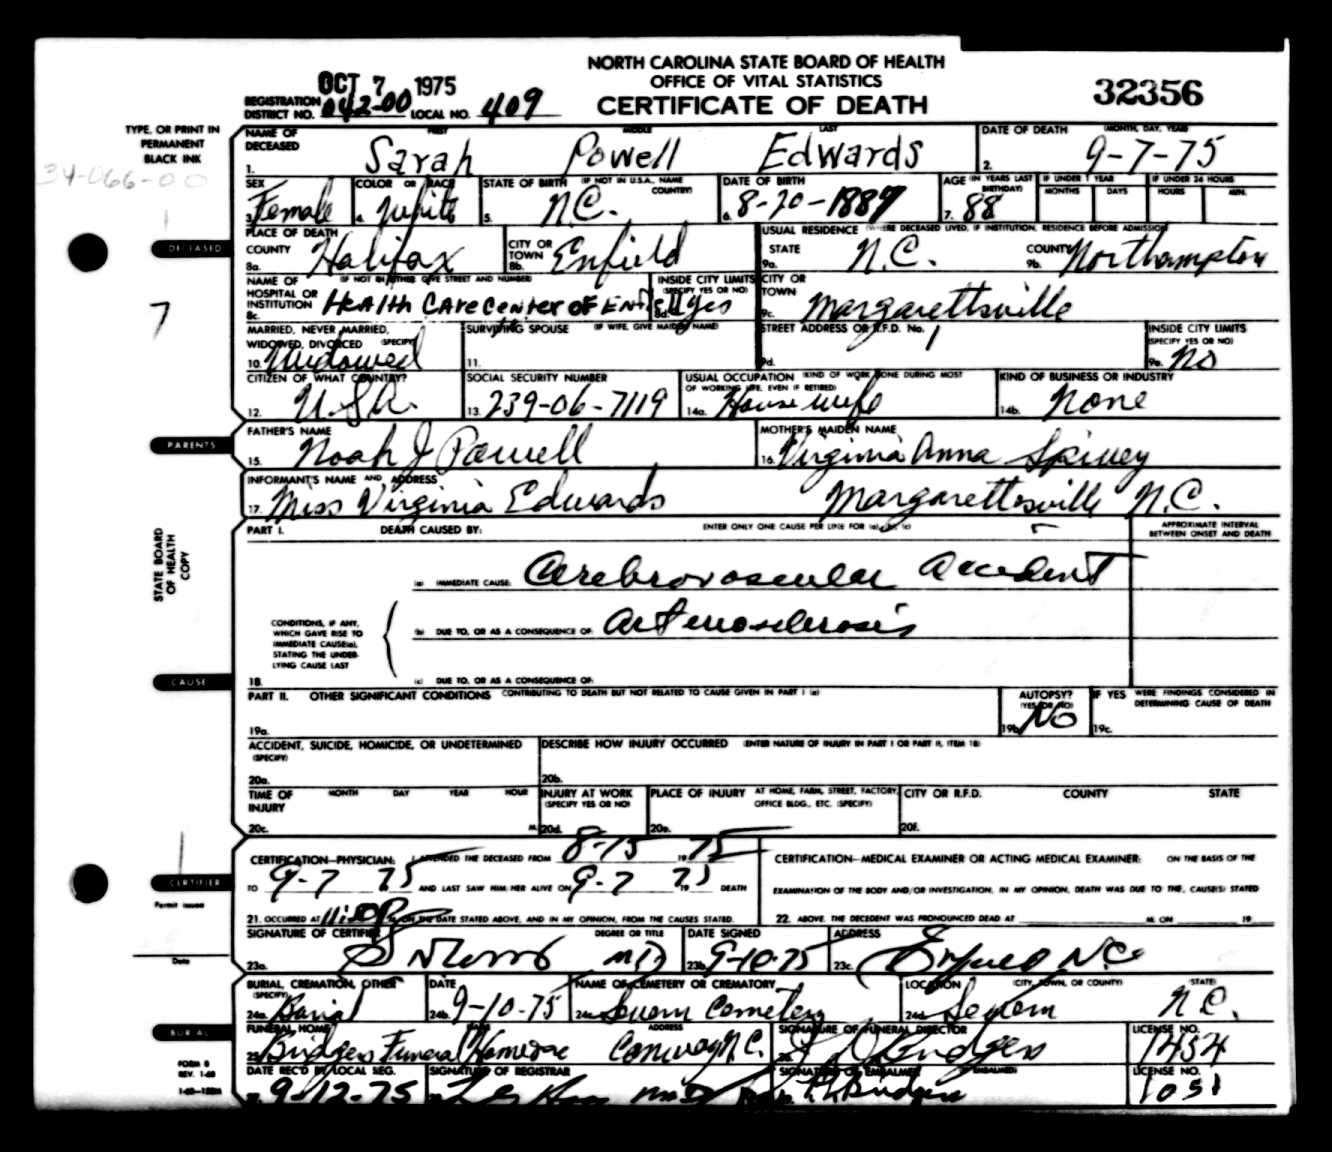 NORTH CAROLINA STATE BOARD OF HEALTH
OFFICE OF VITAL STATISTICS
CERTIFICATE OF DEATH
OCT 7 1975
32356
REGISTRATION DISTRICT NO. 042-00 LOCAL NO. 409
TYPE, OR PRINT IN PERMANENT BLACK INK
34-066-00
NAME OF DECEASED FIRST MIDDLE LAST DATE OF DEATH (MONTH, DAY, YEAR)
1. Sarah Powell Edwards 2. 9-7-75
SEX COLOR OR RACE STATE OF BIRTH (IF NOT IN U.S.A., NAME COUNTRY) DATE OF BIRTH AGE (IN YEARS LAST BIRTHDAY) IF UNDER 1 YEAR MONTHS DAYS IF UNDER 24 HOURS HOURS MIN.
3. Female 4. White 5. N.C. 6. 8-20-1889 7. 88
DECEASED
PLACE OF DEATH USUAL RESIDENCE (WHERE DECEASED LIVED, IF INSTITUTION, RESIDENCE BEFORE ADMISSION)
COUNTY 8a. Halifax CITY OR TOWN 8b. Enfield STATE 9a. N.C. COUNTY 9b. Northampton
7
NAME OF HOSPITAL OR INSTITUTION (IF NOT IN EITHER GIVE STREET AND NUMBER) INSIDE CITY LIMITS (SPECIFY YES OR NO) CITY OR TOWN
8c. Health Care Center of Enfield 8d. yes 9c. Margarettsville
MARRIED, NEVER MARRIED, WIDOWED, DIVORCED (SPECIFY) SURVIVING SPOUSE (IF WIFE, GIVE MAIDEN NAME) STREET ADDRESS OR R.F.D. No. INSIDE CITY LIMITS (SPECIFY YES OR NO)
10. Widowed 11. 9d. 1 9e. No
CITIZEN OF WHAT COUNTRY? SOCIAL SECURITY NUMBER USUAL OCCUPATION (KIND OF WORK DONE DURING MOST OF WORKING LIFE, EVEN IF RETIRED) KIND OF BUSINESS OR INDUSTRY
12. U.S.A. 13. 239-06-7119 14a. Housewife 14b. None
PARENTS
FATHER'S NAME MOTHER'S MAIDEN NAME
15. Noah J Powell 16. Virginia Anna Spivey
INFORMANT'S NAME AND ADDRESS
17. Miss Virginia Edwards Margarettsville N.C.
STATE BOARD OF HEALTH COPY
PART I. DEATH CAUSED BY: ENTER ONLY ONE CAUSE PER LINE FOR (a), (b), (c) APPROXIMATE INTERVAL BETWEEN ONSET AND DEATH
(a) IMMEDIATE CAUSE: Cerebrovascular accident
CONDITIONS, IF ANY, WHICH GAVE RISE TO IMMEDIATE CAUSE(a), STATING THE UNDERLYING CAUSE LAST
(b) DUE TO, OR AS A CONSEQUENCE OF: Arteriosclerosis
CAUSE
18. (c) DUE TO, OR AS A CONSEQUENCE OF:
PART II. OTHER SIGNIFICANT CONDITIONS CONTRIBUTING TO DEATH BUT NOT RELATED TO CAUSE GIVEN IN PART I (a) AUTOPSY? (YES OR NO) IF YES WERE FINDINGS CONSIDERED IN DETERMINING CAUSE OF DEATH
19a. 19b. No 19c.
ACCIDENT, SUICIDE, HOMICIDE, OR UNDETERMINED (SPECIFY) DESCRIBE HOW INJURY OCCURRED (ENTER NATURE OF INJURY IN PART I OR PART II, ITEM 18)
20a. 20b.
TIME OF INJURY MONTH DAY YEAR HOUR INJURY AT WORK (SPECIFY YES OR NO) PLACE OF INJURY AT HOME, FARM, STREET, FACTORY, OFFICE BLDG., ETC. (SPECIFY) CITY OR R.F.D. COUNTY STATE
20c. M. 20d. 20e. 20f.
CERTIFICATION—PHYSICIAN: I ATTENDED THE DECEASED FROM 8-15 1975
CERTIFICATION—MEDICAL EXAMINER OR ACTING MEDICAL EXAMINER: ON THE BASIS OF THE
CERTIFIER
TO 9-7 75 AND LAST SAW HIM/HER ALIVE ON 9-7 1975 DEATH
EXAMINATION OF THE BODY AND/OR INVESTIGATION, IN MY OPINION, DEATH WAS DUE TO THE, CAUSE(S) STATED
Permit issued
21. OCCURRED AT 11:50P M. ON THE DATE STATED ABOVE, AND IN MY OPINION, FROM THE CAUSES STATED.
22. ABOVE. THE DECEDENT WAS PRONOUNCED DEAD AT M. ON 19
SIGNATURE OF CERTIFIER DEGREE OR TITLE DATE SIGNED ADDRESS
23a. MD 23b. 9-10-75 23c. Enfield N.C.
Date
BURIAL, CREMATION, OTHER (SPECIFY) DATE NAME OF CEMETERY OR CREMATORY LOCATION (CITY, TOWN, OR COUNTY) (STATE)
24a. Burial 24b. 9-10-75 24c. Severn Cemetery 24d. Severn N.C.
BURIAL
FUNERAL HOME NAME ADDRESS SIGNATURE OF FUNERAL DIRECTOR LICENSE NO.
25. Bridgers Funeral Home Inc Conway N.C. 26. Bridgers 1434
FORM 8
REV. 1-68
DATE REC'D BY LOCAL REG. SIGNATURE OF REGISTRAR SIGNATURE OF EMBALMER (IF EMBALMED) LICENSE NO.
9-12-75 MD Bridgers 1051